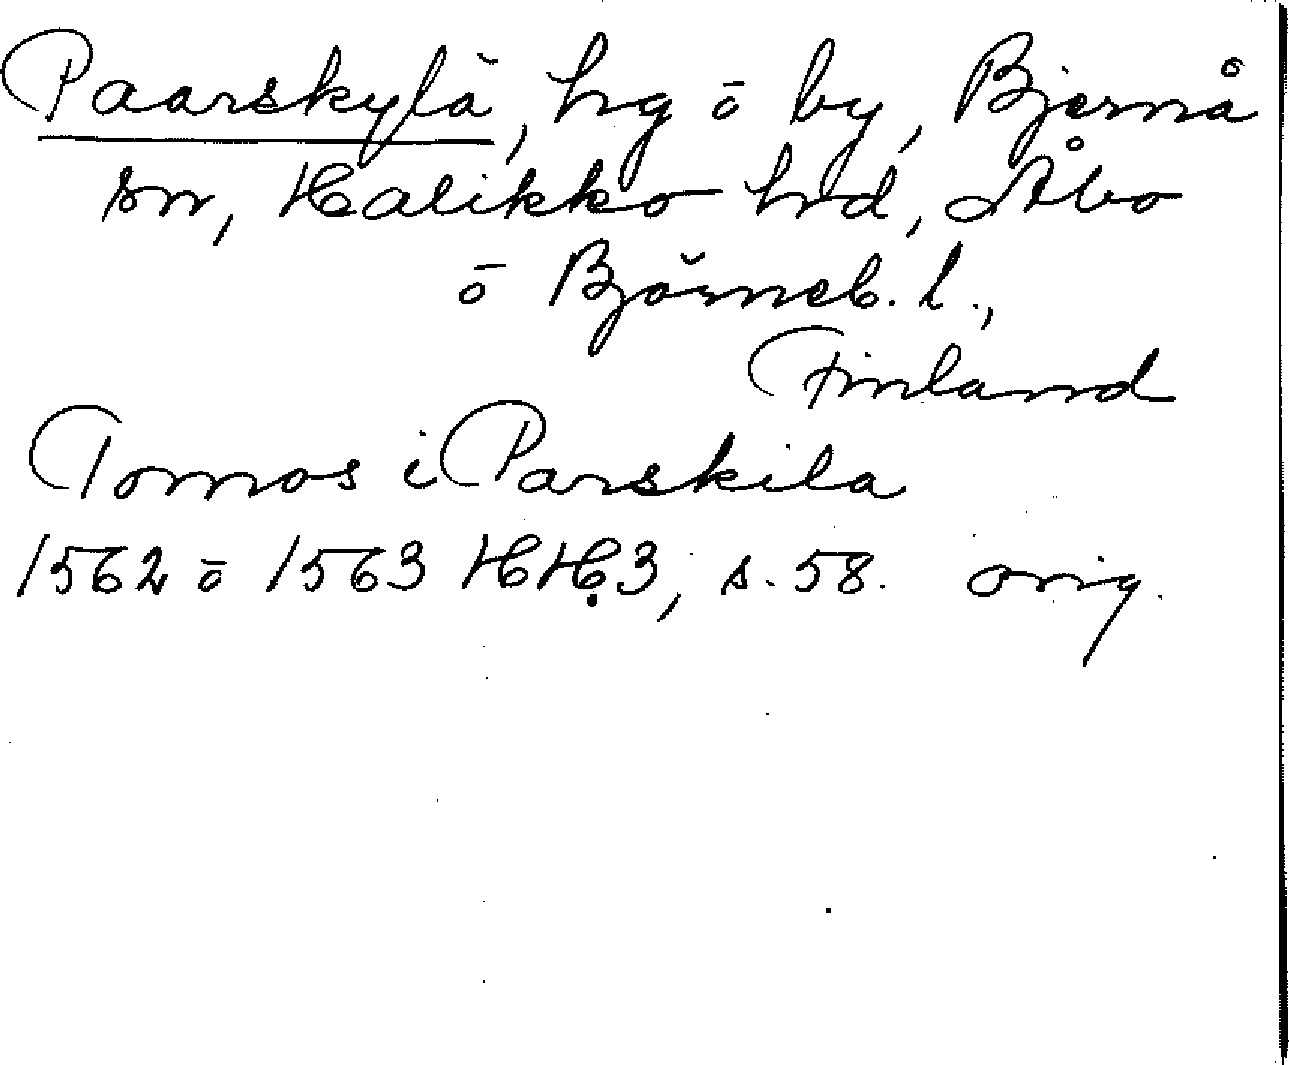 Paarskylä, hg ō by, Bjernå
sn, Halikko hrd, Åbo
ō Björneb. l.,
Finland
Tomos i Parskila
1562 ō 1563 HH3, s. 58. orig.